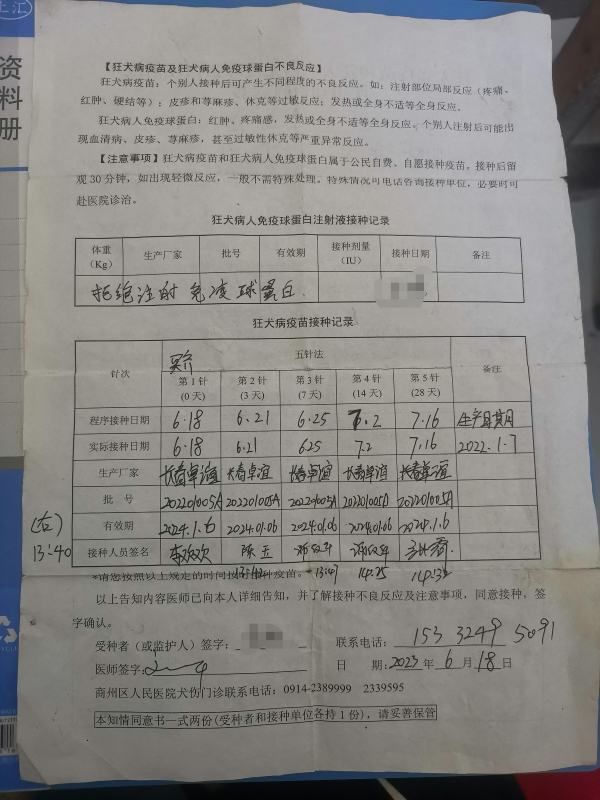 上汇
资
料
册
【狂犬病疫苗及狂犬病人免疫球蛋白不良反应】
狂犬病疫苗：个别人接种后可产生不同程度的不良反应。如：注射部位局部反应（疼痛、
红肿、硬结等）；皮疹和荨麻疹、休克等过敏反应；发热或全身不适等全身反应。
狂犬病人免疫球蛋白：红肿、疼痛感，发热或全身不适等全身反应。个别人注射后可能出
现血清病、皮疹、荨麻疹，甚至过敏性休克等严重异常反应。
【注意事项】狂犬病疫苗和狂犬病人免疫球蛋白属于公民自费、自愿接种疫苗。接种后留
观30分钟，如出现轻微反应，一般不需特殊处理。特殊情况可电话咨询接种单位，必要时可
赴医院诊治。
狂犬病人免疫球蛋白注射液接种记录
体重（Kg） 生产厂家 批号 有效期 接种剂量（IU） 接种日期 备注
拒绝注射免疫球蛋白
狂犬病疫苗接种记录
针次 五针法 备注
第1针（0天） 第2针（3天） 第3针（7天） 第4针（14天） 第5针（28天）
程序接种日期 6.18 6.21 6.25 7.2 7.16 生产日期
实际接种日期 6.18 6.21 6.25 7.2 7.16 2022.1.7
生产厂家 长春卓谊 长春卓谊 长春卓谊 长春卓谊 长春卓谊
批号 202201005A 202201005A 202201005A 202201005A 202201005A
(右) 有效期 2024.1.6 2024.01.06 2024.01.06 2024.01.06 2024.1.6
13:40 接种人员签名 陈玉
*请您按照以上规定的时间按时接种疫苗。 13:47 14:25
以上告知内容医师已向本人详细告知，并了解接种不良反应及注意事项，同意接种，签
字确认。
受种者（或监护人）签字： 联系电话：153 3249 5091
医师签字： 日 期：2023年6月18日
商州区人民医院犬伤门诊联系电话：0914-2389999 2339595
本知情同意书一式两份(受种者和接种单位各持1份)，请妥善保管